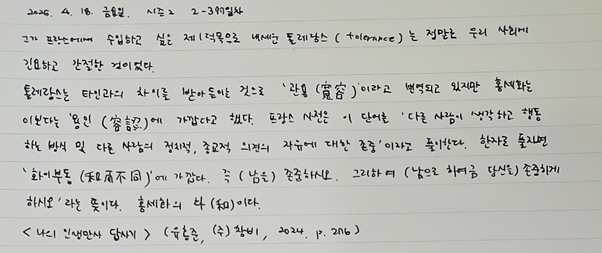 2025. 4. 18. 금요일. 시즌2 2-397일차
그가 프랑스에서 수입하고 싶은 제1덕목으로 내세운 톨레랑스(tolerance)는 정말로 우리 사회에
긴요하고 간절한 것이었다.
톨레랑스는 타인과의 차이를 받아들이는 것으로 '관용(寬容)'이라고 번역되고 있지만 홍세화는
이보다는 '용인(容認)'에 가깝다고 했다. 프랑스 사전은 이 단어를 '다른 사람이 생각하고 행동
하는 방식 및 다른 사람의 정치적, 종교적 의견의 자유에 대한 존중'이라고 풀이한다. 한자로 풀자면
'화이부동(和而不同)'에 가깝다. 즉 (남을) 존중하시오. 그리하여 (남으로 하여금 당신을) 존중하게
하시오'라는 뜻이다. 홍세화의 화(和)이다.
<나의 인생만사 답사기> (유홍준, (주)창비, 2024. p.276)